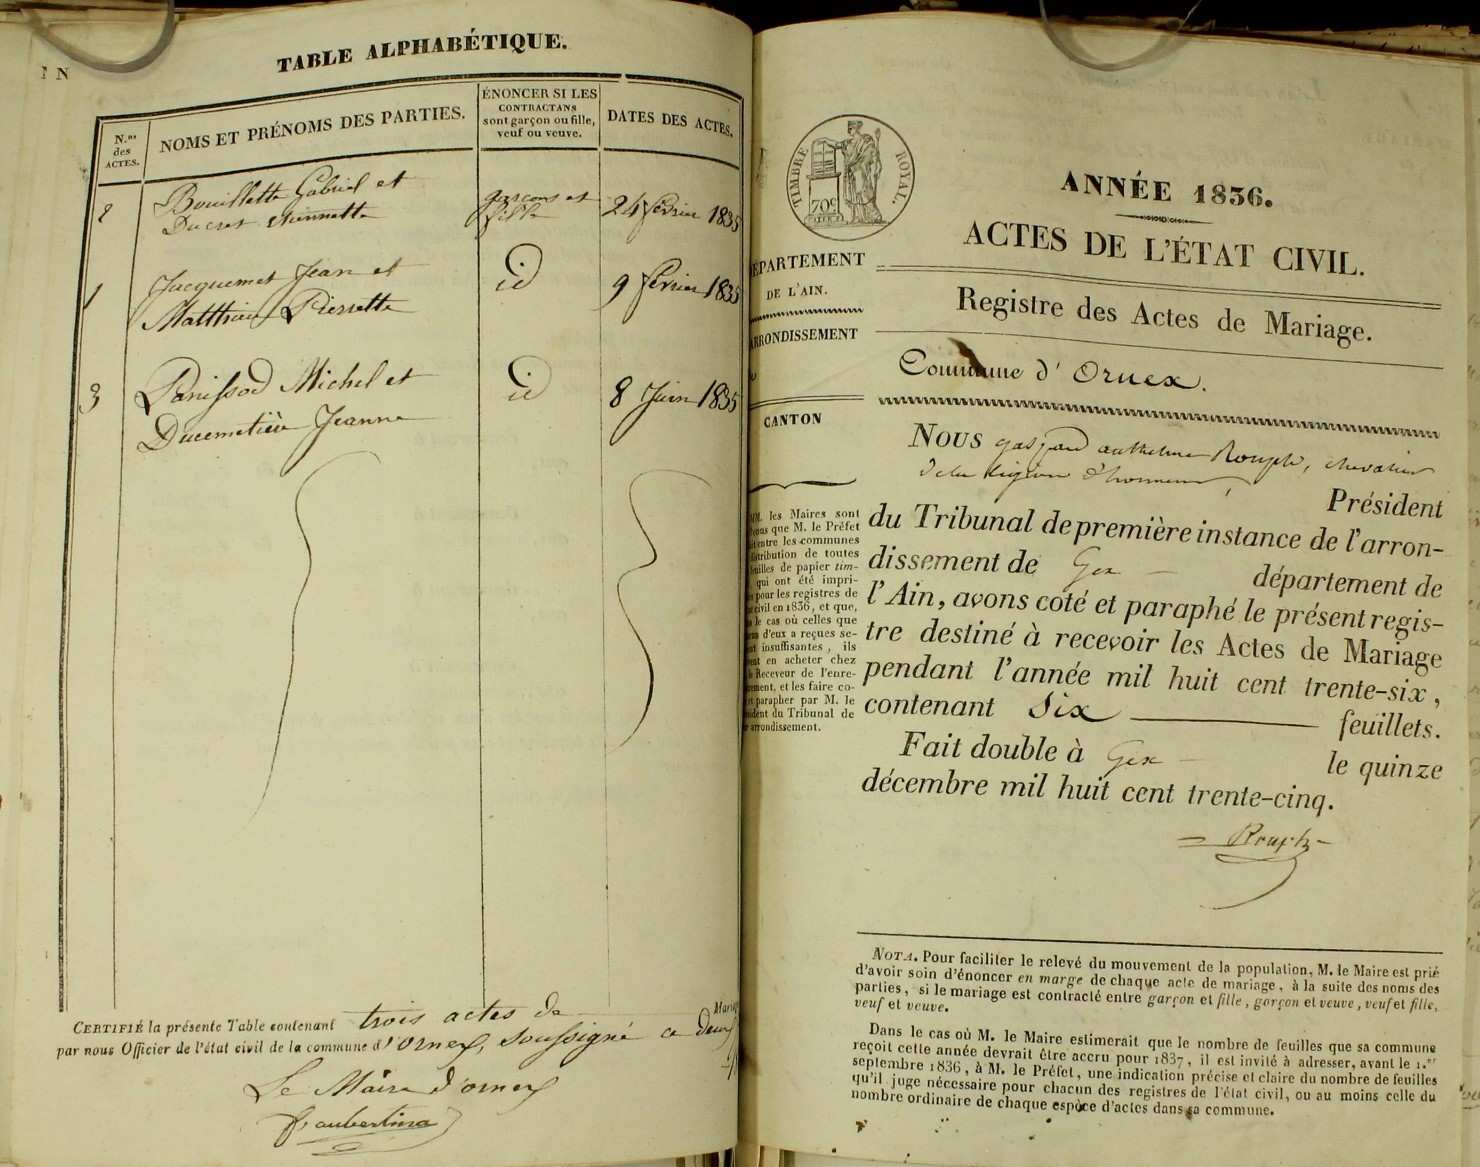 TABLE ALPHABÉTIQUE.
N.os des ACTES.
NOMS ET PRÉNOMS DES PARTIES.
ÉNONCER SI LES
CONTRACTANS
sont garçon ou fille,
veuf ou veuve.
DATES DES ACTES.
2 Bouillette Gabriel et garçons et 24 février 1835
Ducret fille
1 Jacquemet Jean et id 9 février 1835
Matthieu Pierrette
3 Panissod Michel et id 8 Juin 1835
Ducemetière Jeanne
CERTIFIÉ la présente Table contenant trois actes de Mariage
par nous Officier de l'état civil de la commune d'Ornex, soussigné ce deux
Le Maire d'ornex
TIMBRE ROYAL.
70c
ANNÉE 1836.
ACTES DE L'ÉTAT CIVIL.
DÉPARTEMENT
DE L'AIN.
ARRONDISSEMENT
CANTON
Registre des Actes de Mariage.
Commune d' Ornex.
MM. les Maires sont
que M. le Préfet
entre les communes
distribution de toutes
feuilles de papier tim-
qui ont été impri-
pour les registres de
civil en 1836, et que,
le cas où celles que
d'eux a reçues se-
insuffisantes, ils
en acheter chez
Receveur de l'enre-
et les faire co-
parapher par M. le
Président du Tribunal de
arrondissement.
Nous gaspard anthelme Rouph, chevalier
de la légion d'honneur, Président
du Tribunal de première instance de l'arron-
dissement de Gex département de
l'Ain, avons coté et paraphé le présent regis-
tre destiné à recevoir les Actes de Mariage
pendant l'année mil huit cent trente-six,
contenant Six feuillets.
Fait double à Gex le quinze
décembre mil huit cent trente-cinq.
NOTA. Pour faciliter le relevé du mouvement de la population, M. le Maire est prié
d'avoir soin d'énoncer en marge de chaque acte de mariage, à la suite des noms des
parties, si le mariage est contracté entre garçon et fille, garçon et veuve, veuf et fille,
veuf et veuve.
Dans le cas où M. le Maire estimerait que le nombre de feuilles que sa commune
reçoit cette année devrait être accru pour 1837, il est invité à adresser, avant le 1.er
septembre 1836, à M. le Préfet, une indication précise et claire du nombre de feuilles
qu'il juge nécessaire pour chacun des registres de l'état civil, ou au moins celle du
nombre ordinaire de chaque espèce d'actes dans sa commune.